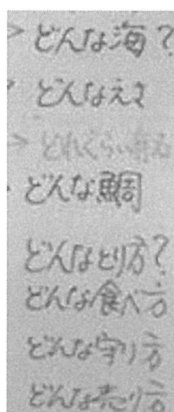 > どんな海？
どんなえさ
> どれくらい
どんな鯛
どんなとり方？
どんな食べ方
どんな守り方
どんな売り方